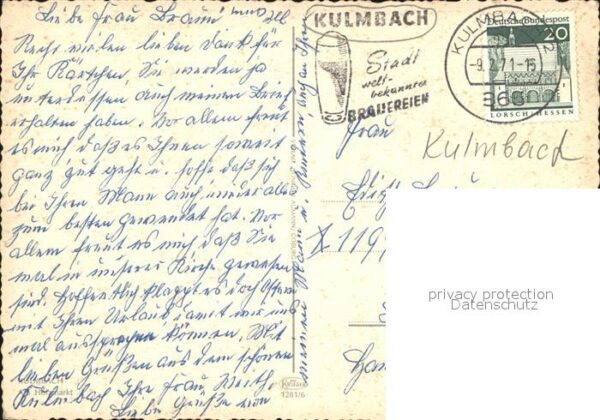 Liebe Frau Braun und
Recht vielen lieben Dank für
Ihr Kärtchen, Sie werden ja
unterdessen auch meinen Brief
erhalten haben. Vor allem freut
es mich daß es Ihnen soweit
ganz gut geht u. hoffe daß sich
bei Ihrem Mann auch wieder alles
zum besten gewendet hat. Vor
allem freut es mich daß Sie
mal in unserer Kirche gewesen
sind. Hoffentlich klappt es doch Ostern
mit Ihrem Urlaub damit wir uns
mal aussprechen können. Mit
lieben Grüßen aus dem schönen
Kulmbach Ihre Frau
Liebe Grüße von
meinem Mann u. Kindern, auch an Ihren
KULMBACH
Stadt
welt-
bekannter
BRAUEREIEN
KULMBACH 2
-9.2.71-15
865
Deutsche Bundespost
20
LORSCH/HESSEN
Frau
Kulmbach
X 119
privacy protection
Datenschutz
KULMBACH
Krüger
1281/6